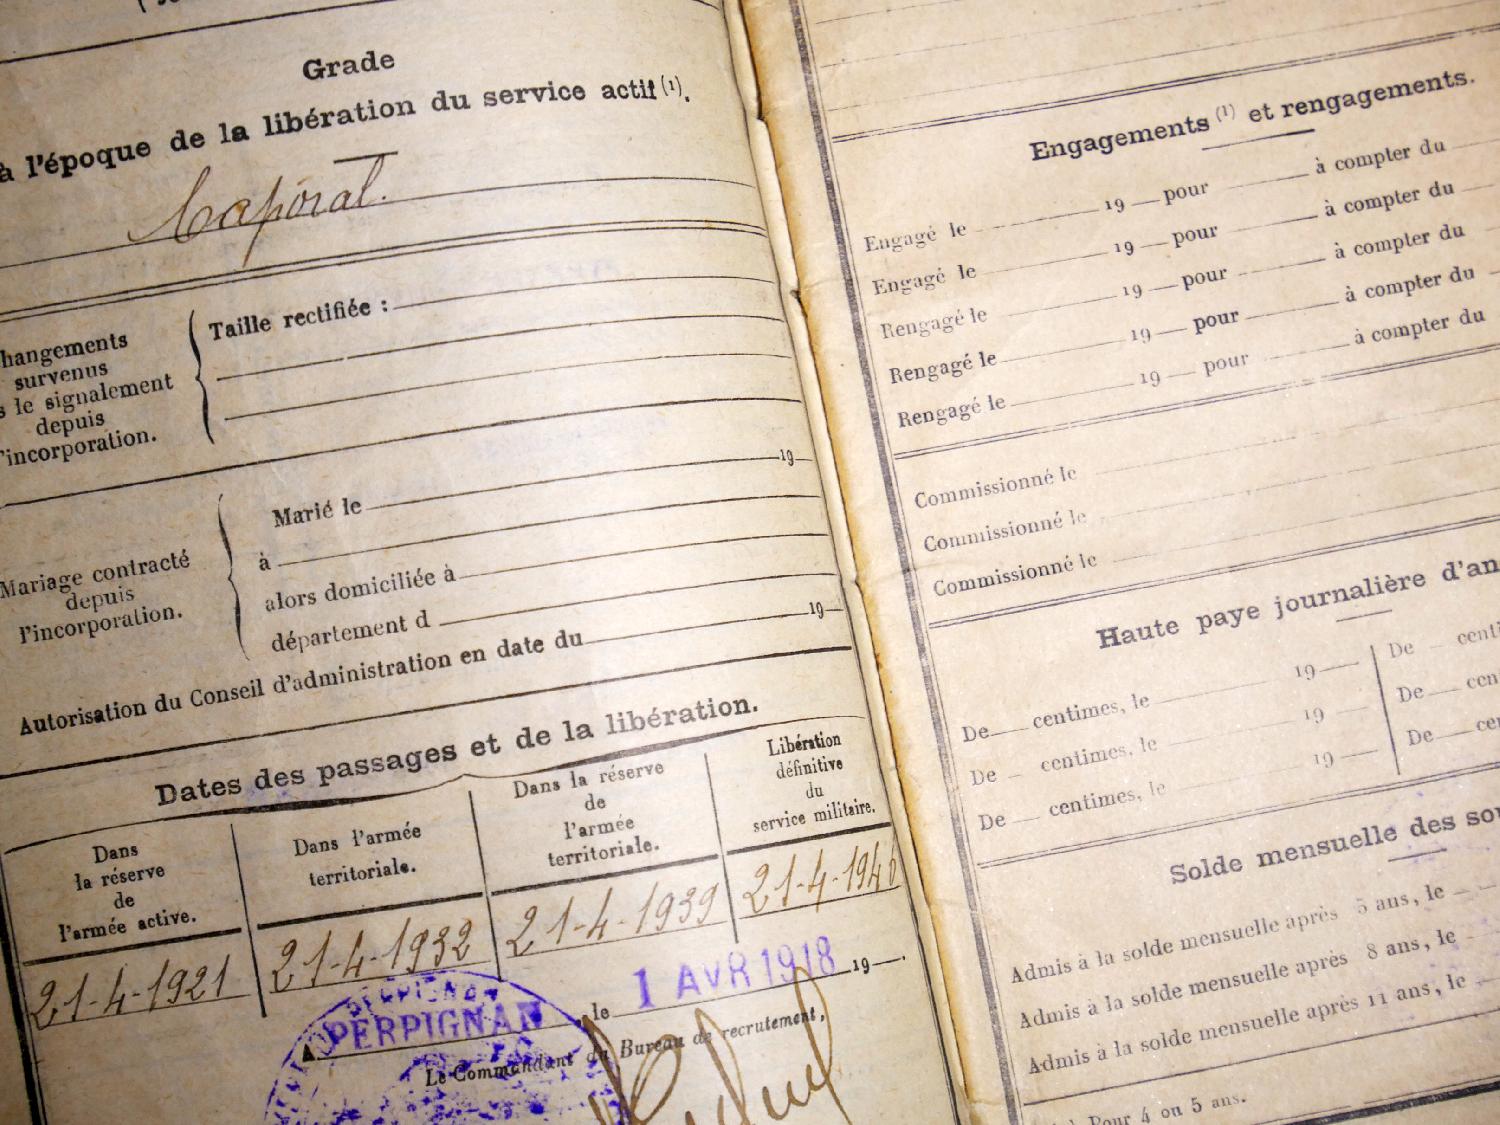 Grade
à l'époque de la libération du service actif (1).
Caporal.
hangements
survenus
s le signalement
depuis
l'incorporation.
Taille rectifiée :
Mariage contracté
depuis
l'incorporation.
Marié le 19
à
alors domiciliée à
département d
Autorisation du Conseil d'administration en date du 19
Dates des passages et de la libération.
Dans
la réserve
de
l'armée active.
Dans l'armée
territoriale.
Dans la réserve
de
l'armée
territoriale.
Libération
définitive
du
service militaire.
21-4-1921
21-4-1932
21-4-1939
21-4-1946
PERPIGNAN
A le 1 AVR 1918 19
Le Commandant du Bureau de recrutement,
Engagements (1) et rengagements.
Engagé le 19 pour à compter du
Engagé le 19 pour à compter du
Rengagé le 19 pour à compter du
Rengagé le 19 pour à compter du
Rengagé le 19 pour à compter du
Commissionné le
Commissionné le
Commissionné le
Haute paye journalière d'an
De centimes, le 19
De centimes, le 19
De centimes, le 19
De centi
De cen
De ce
Solde mensuelle des sou
Admis à la solde mensuelle après 5 ans, le
Admis à la solde mensuelle après 8 ans, le
Admis à la solde mensuelle après 11 ans, le
Pour 4 ou 5 ans.